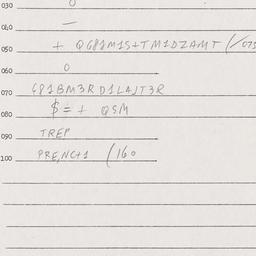 030 0
040 —
050 + QG81M1S+TM1DZAMT (/075
060 0
070 G81BM3RD1LAJT3R
080 $=+ QSM
090 TREP
100 PRENC+1 (160